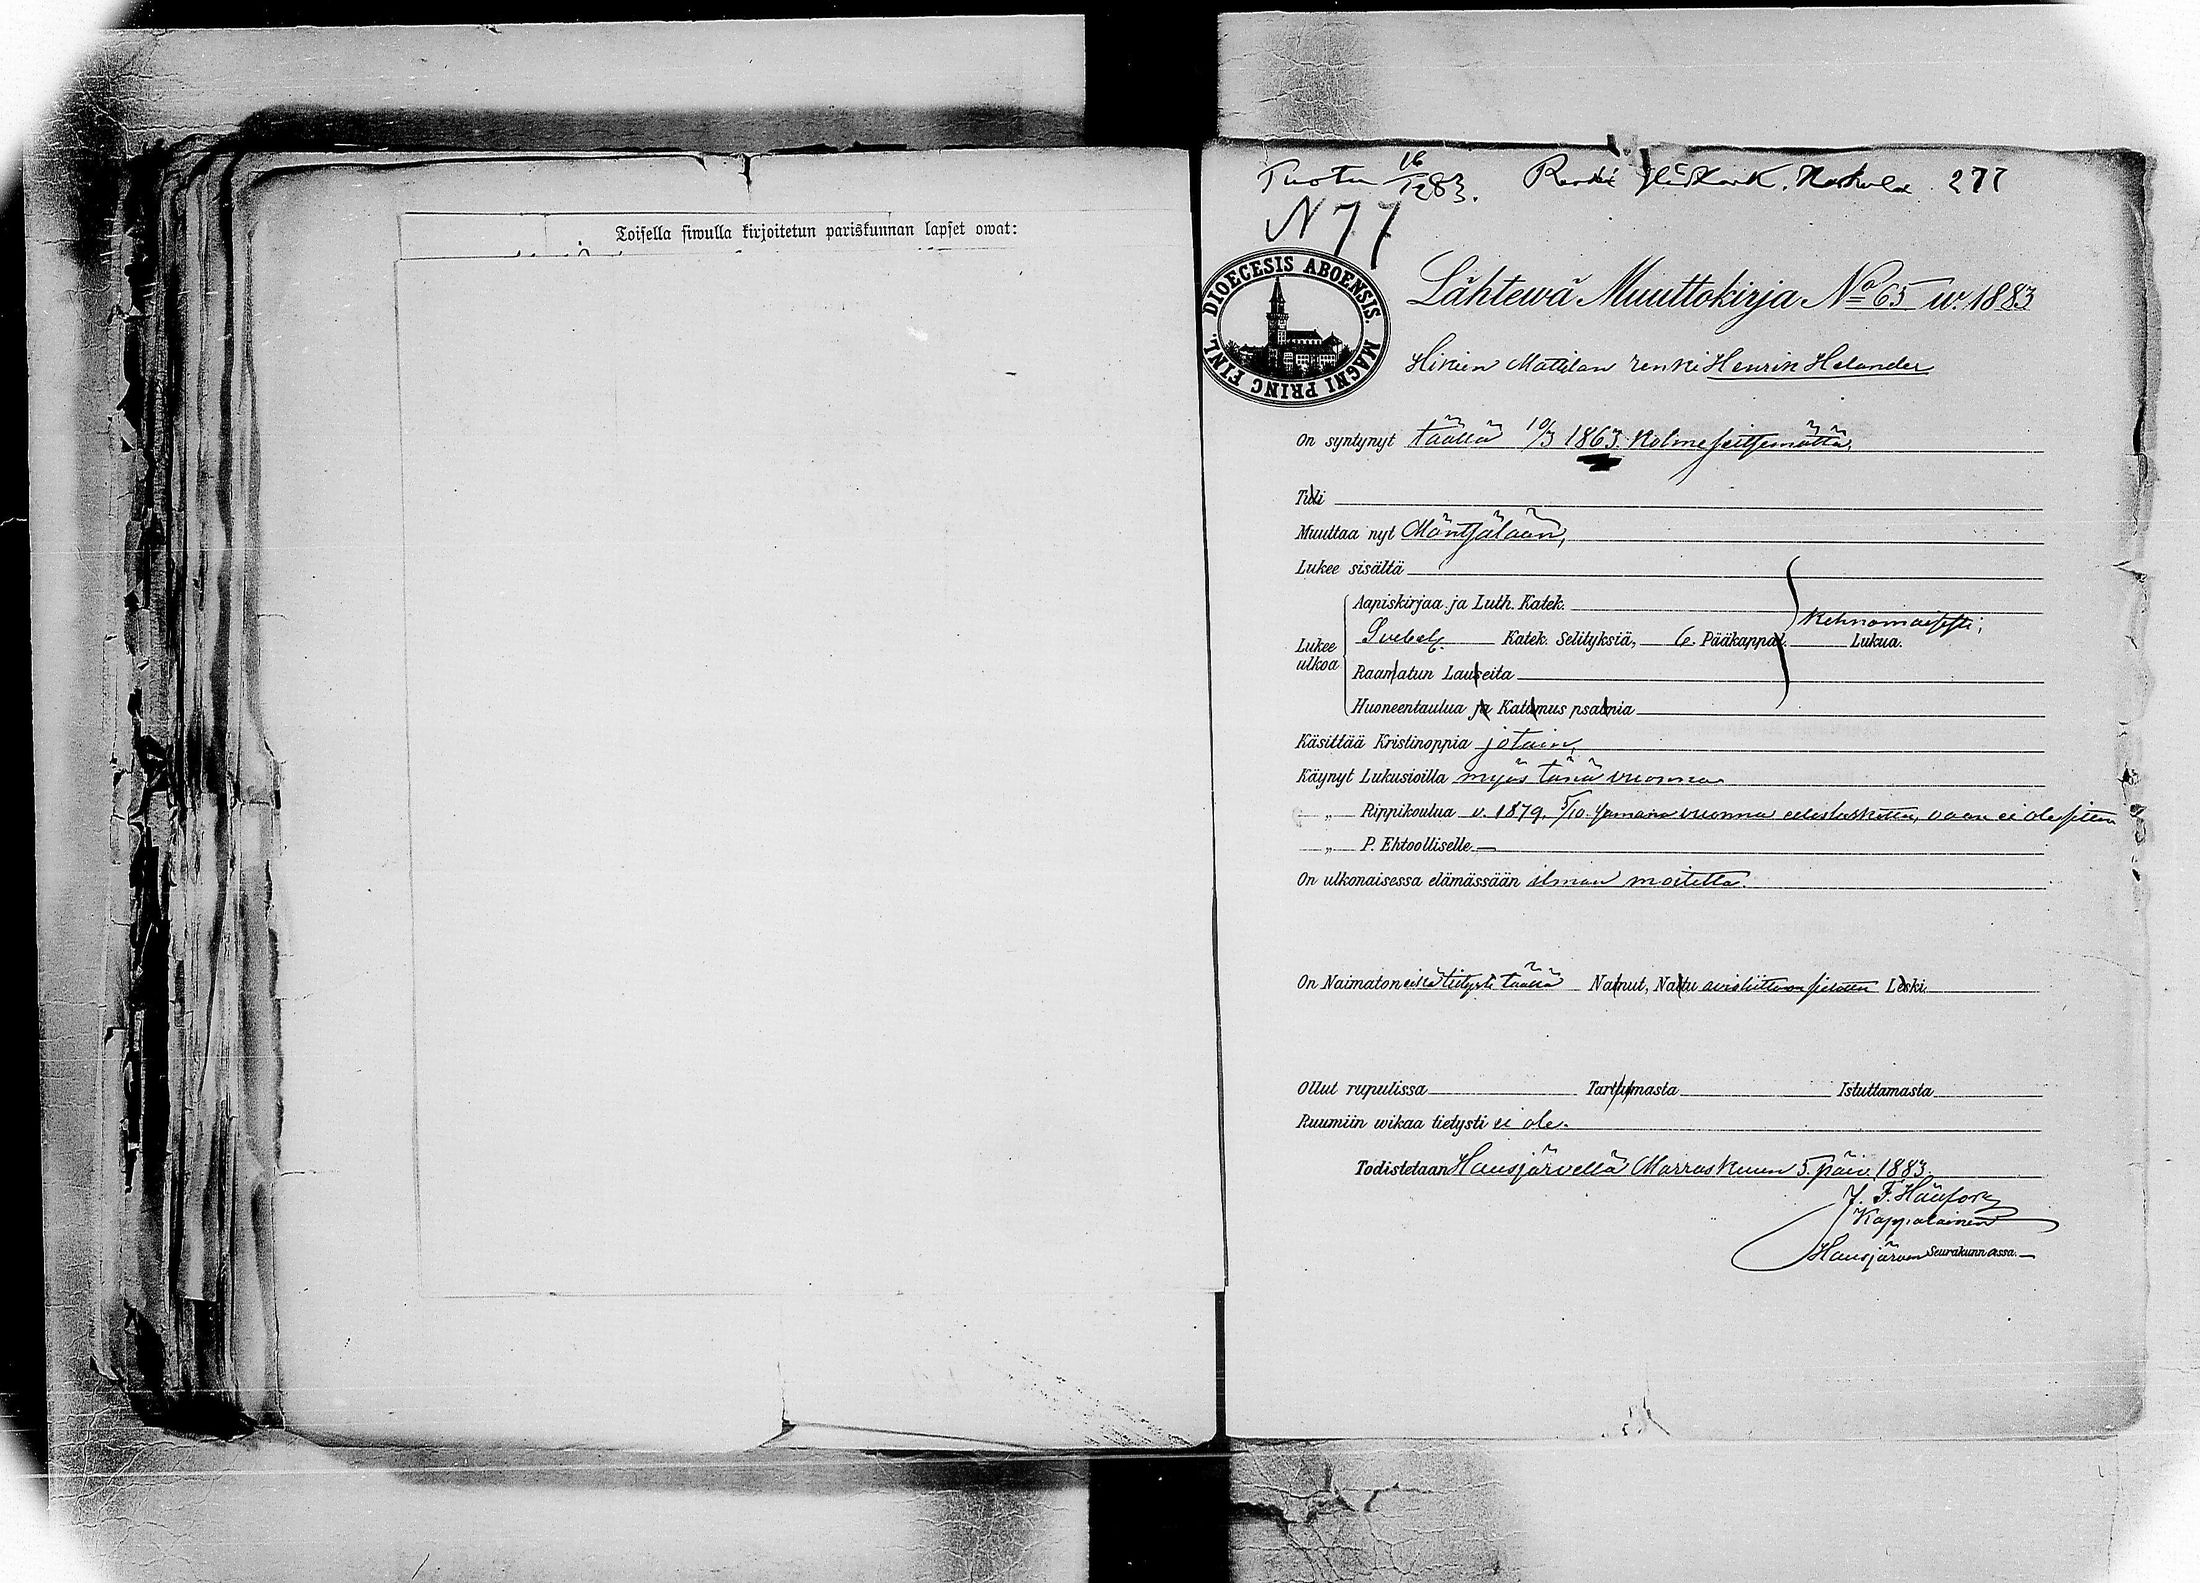 Toisella siwulla kirjoitetun pariskunnan lapset owat:
Tuotu 16/12 83. Renki K. 277
N 77
DIOECESIS ABOENSIS. MAGNI PRINC FINL.
Lähtewä Muuttokirja No 65 w. 1883
Hikien Mattilan renki Henrik Helander
On syntynyt täällä 10/3 1863. Kolmeseitsemättä,
Tuli
Muuttaa nyt Mäntsälään,
Lukee sisältä
Aapiskirjaa ja Luth. Katek.
Kehnomaisesti;
Lukee ulkoa
Svebel. Katek. Selityksiä, 6. Pääkappal. Lukua.
Raamatun Lauseita
Huoneentaulua ja Katumus psalmia
Käsittää Kristinoppia jotain,
Käynyt Lukusioilla myös tänä vuonna
„ Rippikoulua v. 1879. 5/10 samana vuonna edistuskettu, vaan ei ole sitten
„ P. Ehtoolliselle
On ulkonaisessa elämässään ilman moitetta.
On Naimaton eikä tietysti täällä Nainut, Naitu avioliittoon sidottu Leski
Ollut rupulissa Tarttumasta Istuttamasta
Ruumiin wikaa tietysti ei ole.
Todistetaan Hausjärvellä Marraskuun 5. päiv. 1883.
J. F. Häufors
Kappalainen
Hausjärven Seurakunnassa.